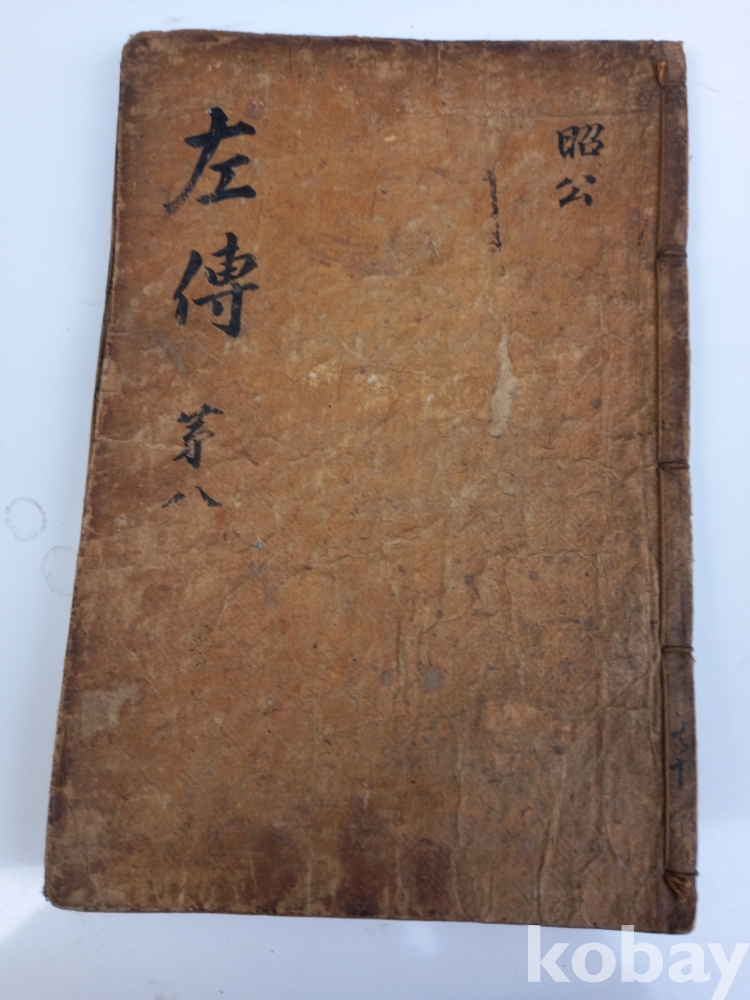 昭公
左傳 茅八
kobay